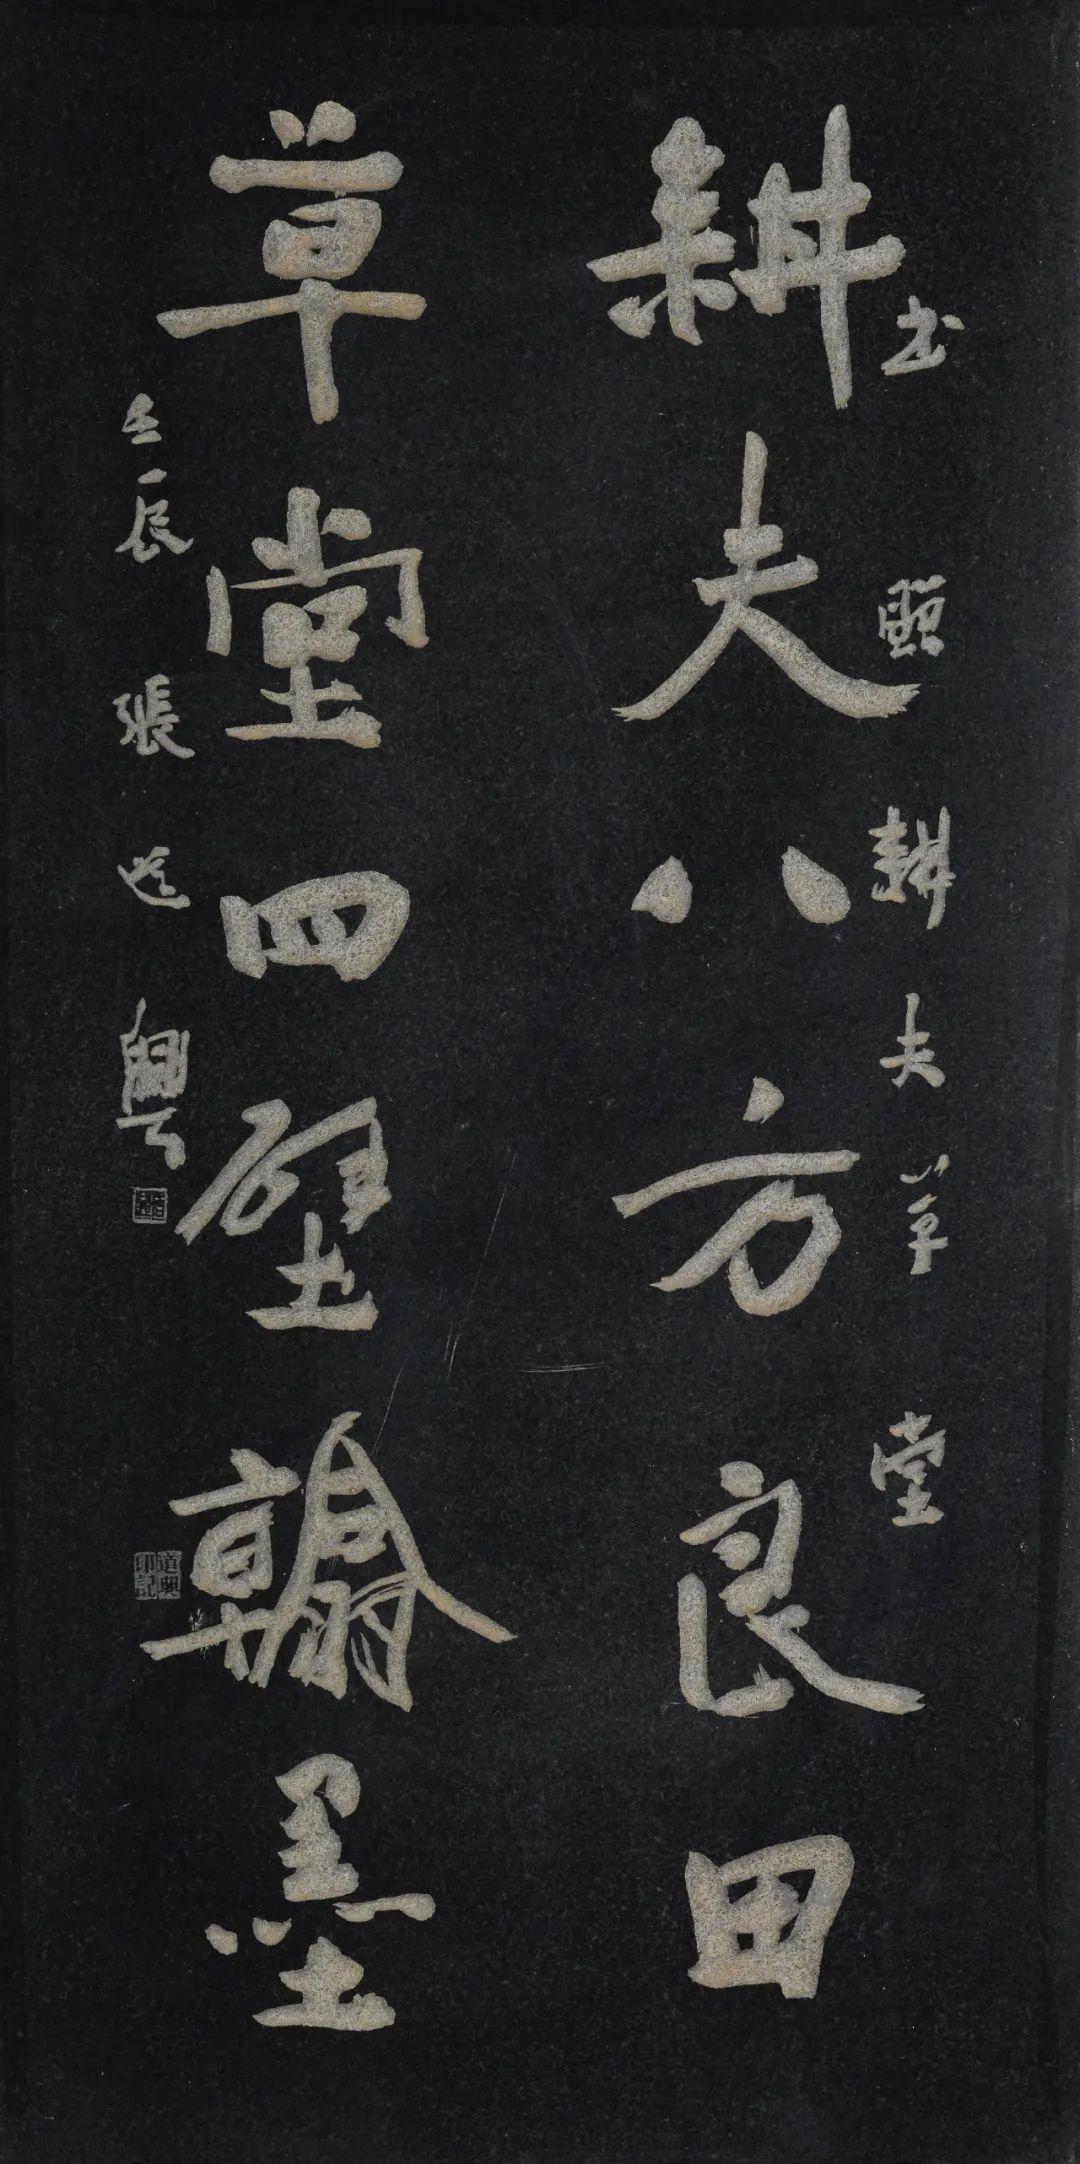 书贈耕夫草堂
耕夫八方良田
草堂四壁翰墨
壬辰張道興
道興印記